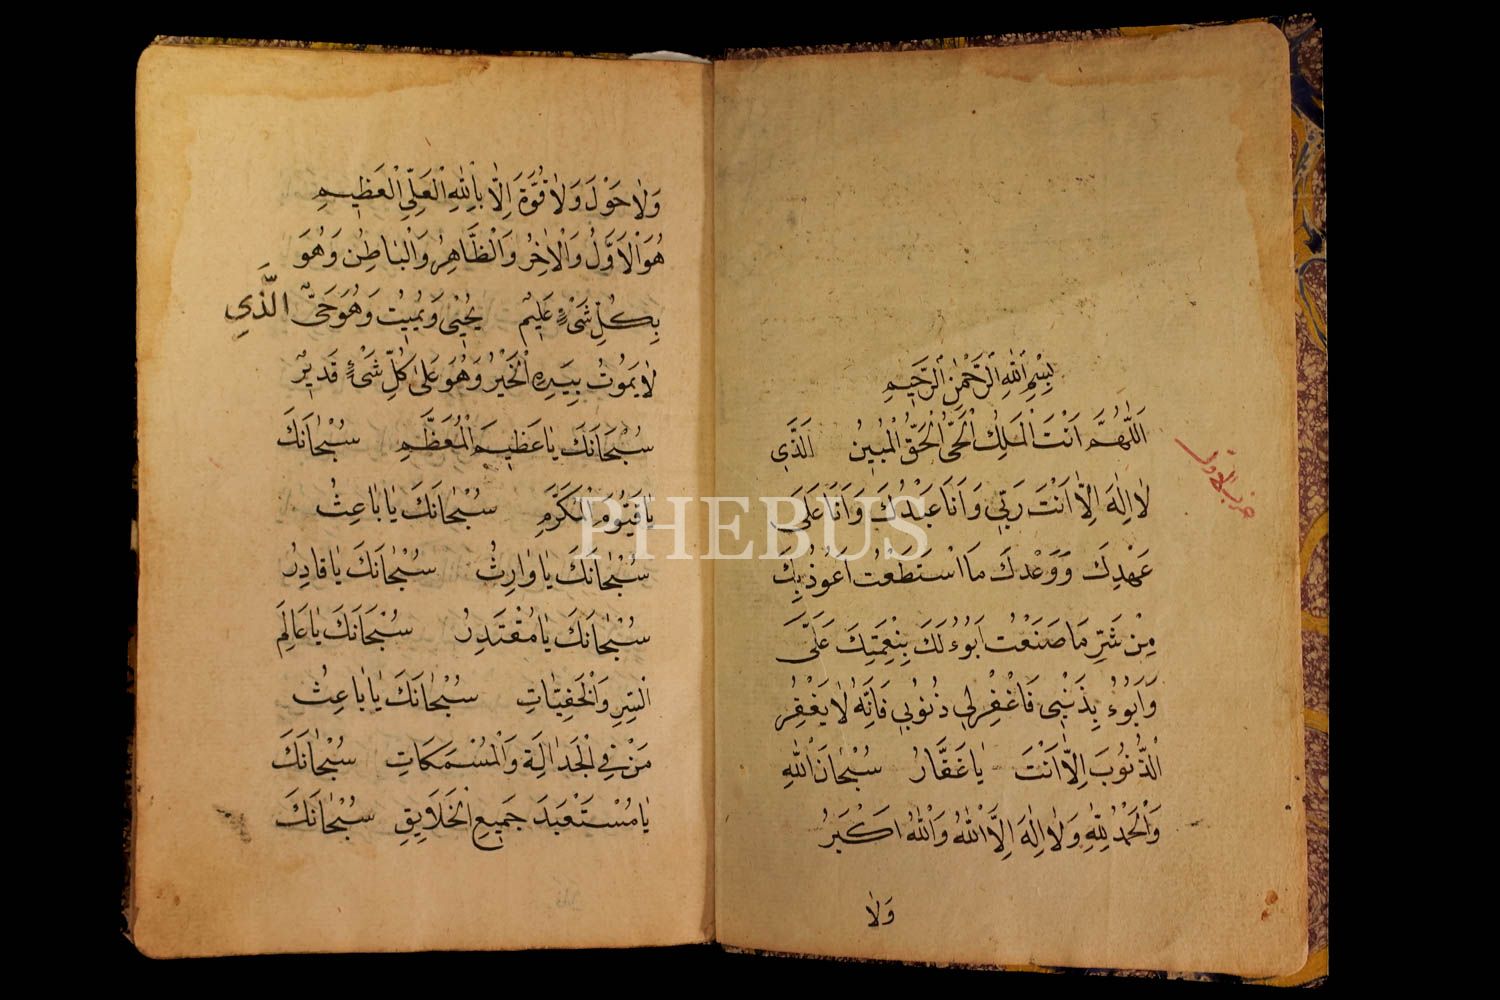 بِسْمِ اللّٰهِ الرَّحْمٰنِ الرَّحِيمِ
اَللّٰهُمَّ اَنْتَ الْمَلِكُ الْحَىُّ الْحَقُّ الْمُبِينُ اَلَّذِي
لٰا اِلٰهَ اِلّٰا اَنْتَ رَبّٖي وَاَنَا عَبْدُكَ وَاَنَا عَلَى
عَهْدِكَ وَوَعْدِكَ مَا اسْتَطَعْتُ اَعُوذُ بِكَ
مِنْ شَرِّ مَا صَنَعْتُ اَبُوءُ لَكَ بِنِعْمَتِكَ عَلَىَّ
وَاَبُوءُ بِذَنْبٖي فَاغْفِرْلٖي ذُنُوبٖي فَاِنَّهُ لٰا يَغْفِرُ
الذُّنُوبَ اِلّٰا اَنْتَ يٰا غَفَّارُ سُبْحٰانَ اللّٰهِ
وَالْحَمْدُ لِلّٰهِ وَلٰا اِلٰهَ اِلَّا اللّٰهُ وَاللّٰهُ اَكْبَرُ
وَلٰا
وَلٰا حَوْلَ وَلٰا قُوَّةَ اِلّٰا بِاللّٰهِ الْعَلِىِّ الْعَظٖيمِ
هُوَ الْاَوَّلُ وَالْاٰخِرُ وَالظَّاهِرُ وَالْبٰاطِنُ وَهُوَ
بِكُلِّ شَىْءٍ عَلٖيمٌ يُحْيٖى وَيُمٖيتُ وَهُوَ حَىٌّ الَّذٖي
لٰا يَمُوتُ بِيَدِهِ الْخَيْرُ وَهُوَ عَلٰى كُلِّ شَىْءٍ قَدٖيرٌ
سُبْحَانَكَ يٰا عَظٖيمَ الْمُعَظَّمِ سُبْحٰانَكَ
يٰا قَيُّومَ الْمُكَرَّمِ سُبْحٰانَكَ يٰا بٰاعِثُ
سُبْحٰانَكَ يٰا وٰارِثُ سُبْحٰانَكَ يٰا قٰادِرُ
سُبْحٰانَكَ يٰا مُقْتَدِرُ سُبْحَانَكَ يٰا عَالِمَ
السِّرِ وَالْخَفِيّٰاتِ سُبْحٰانَكَ يٰا بٰاعِثُ
مَنْ فِي الْجَدٰالَةِ وَالْمُسْمَكٰاتِ سُبْحٰانَكَ
يٰا مُسْتَعْبَدَ جَمٖيعِ الْخَلٰايِقِ سُبْحٰانَكَ
PHEBUS